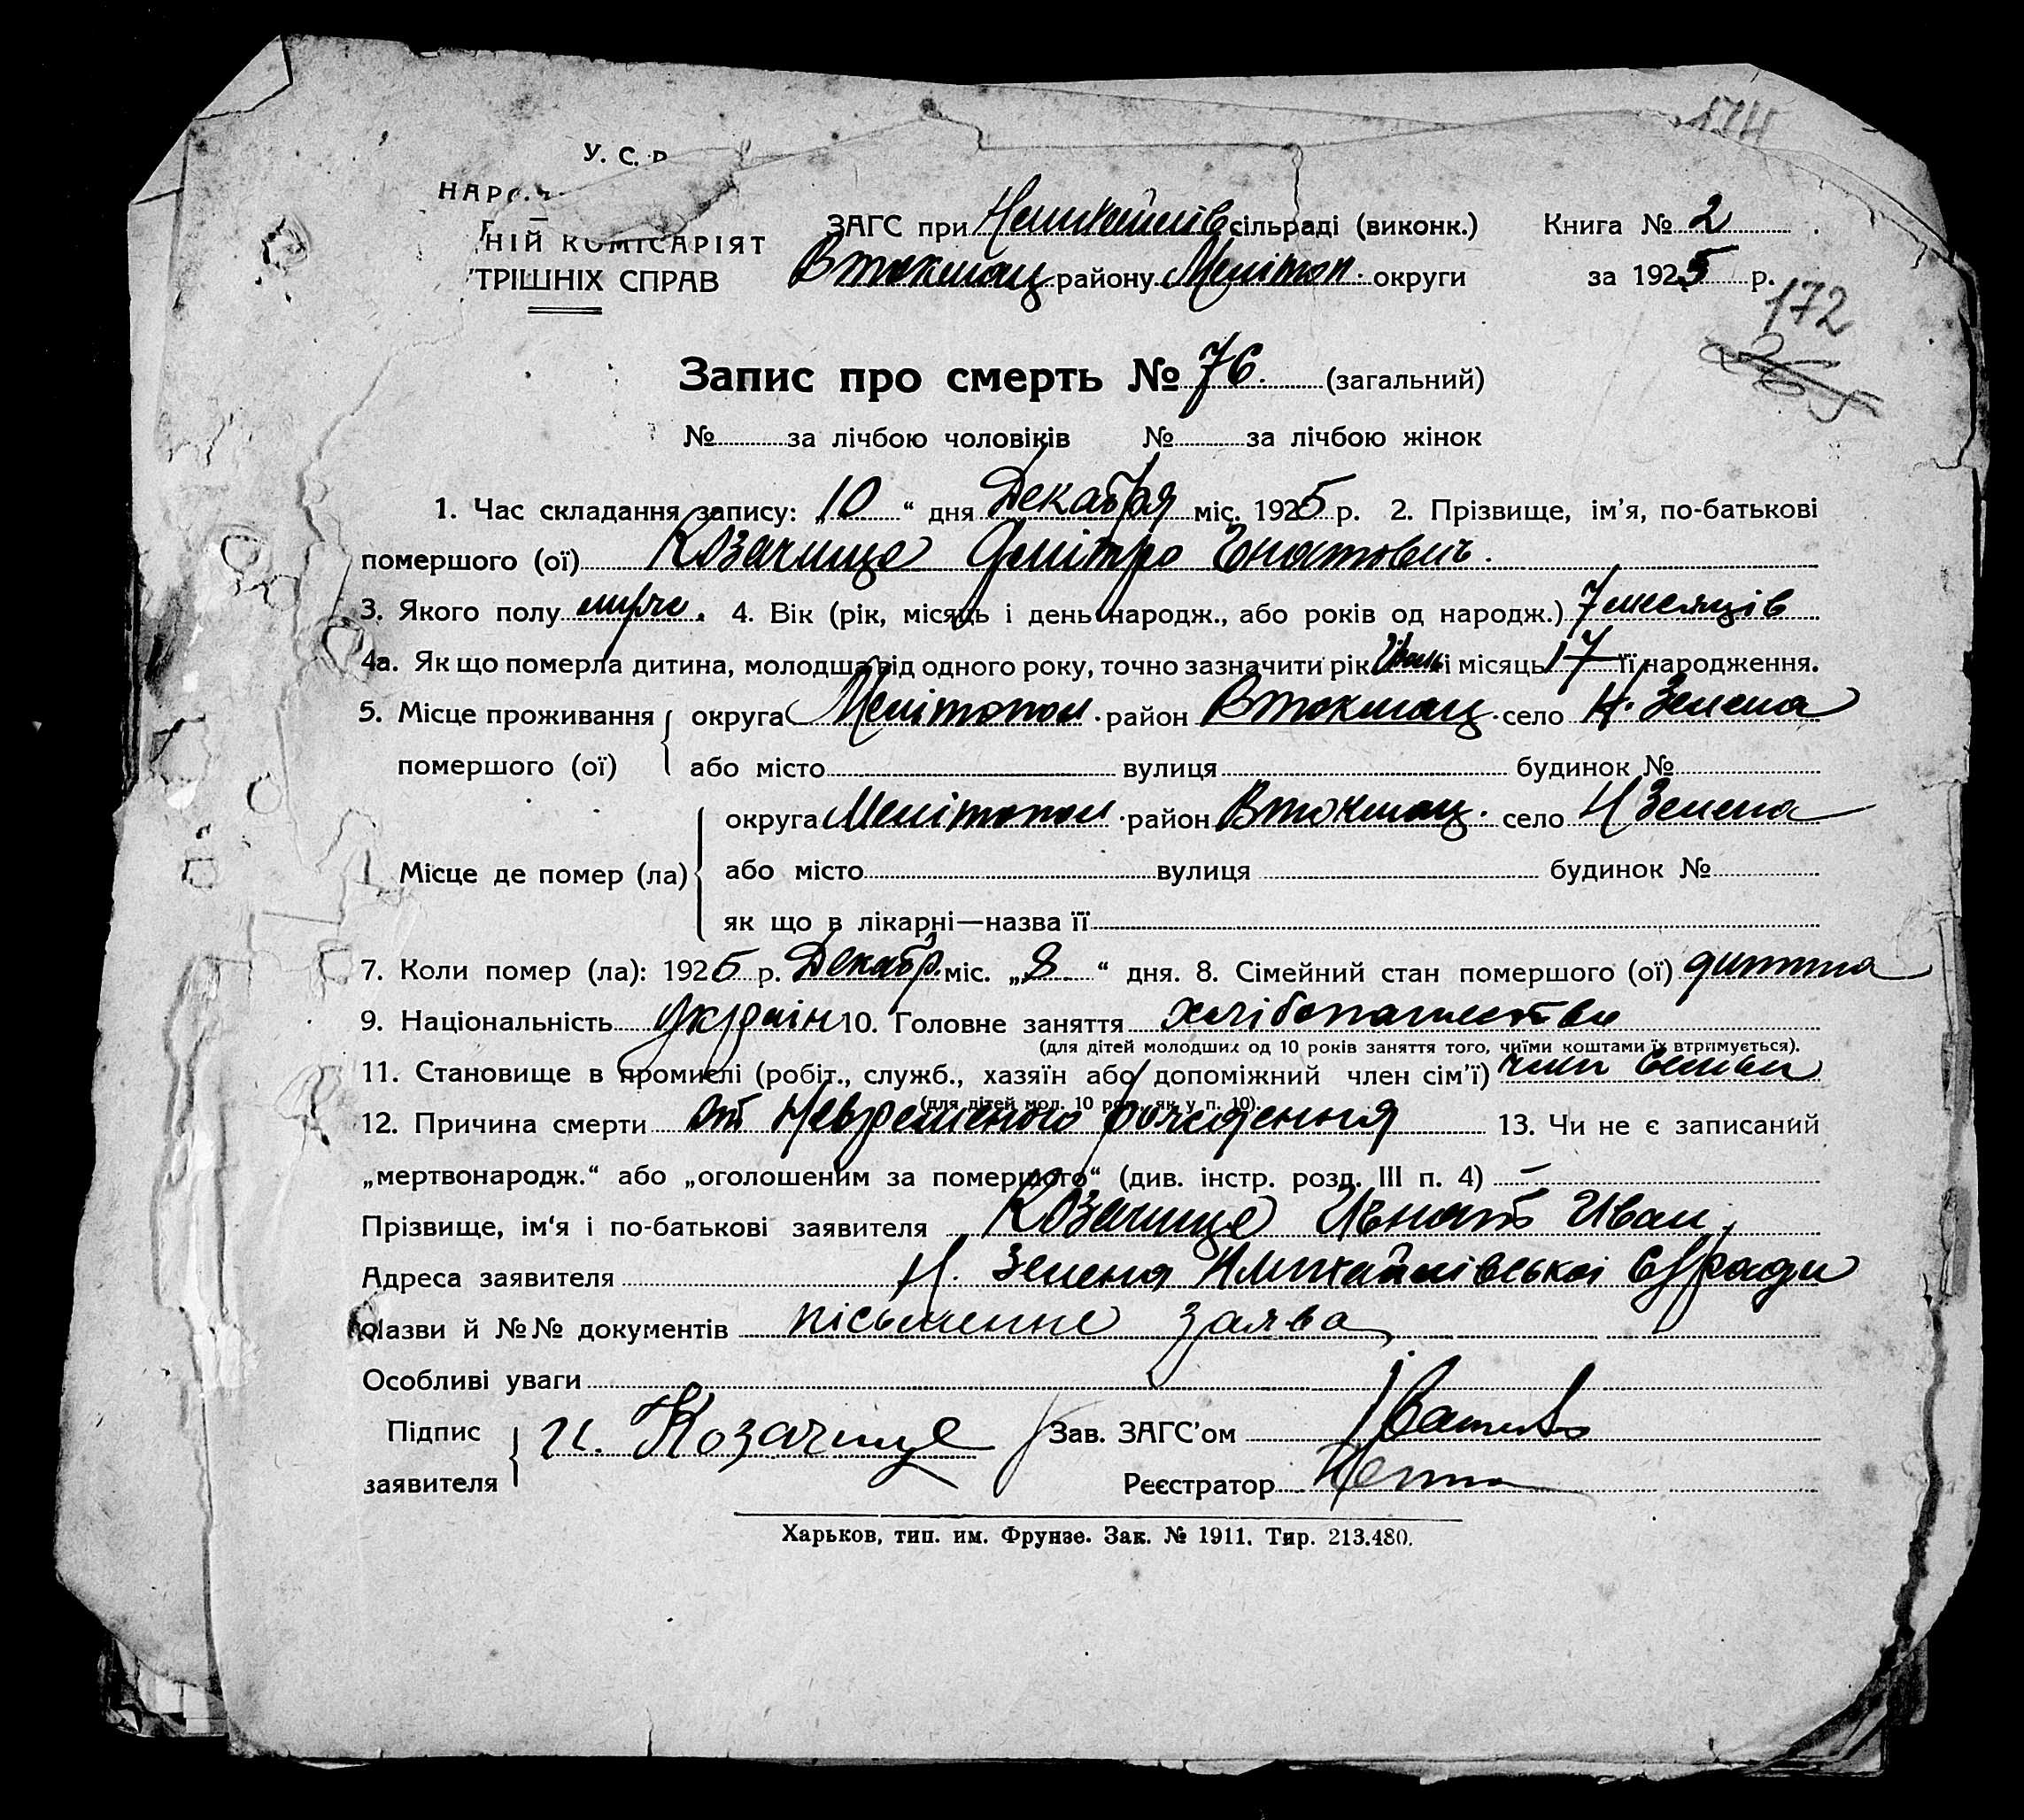 174
У. С. Р
НАРО
НІЙ КОМІСАРІЯТ
ТРІШНІХ СПРАВ
ЗАГС при сільраді (виконк.) Книга № 2
Втокмац району Мелітоп. округи за 1925 р.
172
Запис про смерть № 76. (загальний)
№ за лічбою чоловіків № за лічбою жінок
1. Час складання запису: „10“ дня Декабря міс. 1925 р. 2. Прізвище, ім'я, по-батькові
помершого (ої) Козачище Дмітро Гнатович.
3. Якого полу 4. Вік (рік, місяць і день народж., або років од народж.) 7 месяців
4а. Як що померла дитина, молодша від одного року, точно зазначити рік і місяць 17 її народження.
5. Місце проживання округа Мелітопол. район Втокмац. село Н. Зелена
помершого (ої) або місто вулиця будинок №
округа Мелітопол. район Втокмац. село Н Зелена
Місце де помер (ла) або місто вулиця будинок №
як що в лікарні—назва її
7. Коли помер (ла): 1925 р. Декабр. міс. „8“ дня. 8. Сімейний стан помершого (ої) дитина
9. Національність україн 10. Головне заняття хлібопашество
(для дітей молодших од 10 років заняття того, чиїми коштами їх втримується).
11. Становище в промислі (робіт., служб., хазяїн або допоміжний член сім'ї) член семьи
(для дітей мол. 10 рок. як у п. 10).
12. Причина смерти от Невременого рождення 13. Чи не є записаний
„мертвонародж.“ або „оголошеним за помершого“ (див. інстр. розд. III п. 4) –
Прізвище, ім'я і по-батькові заявителя Козачище Ивнат Иван.
Адреса заявителя Н. Зелена С/ради
Назви й №№ документів письменне заява
Особливі уваги
Підпис И. Козачище Зав. ЗАГС'ом
заявителя Реєстратор
Харьков, тип. им. Фрунзе. Зак. № 1911. Тир. 213.480.